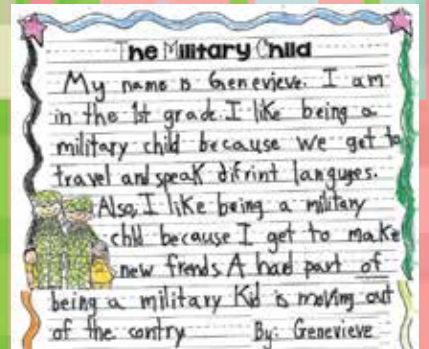 The Military Child
My name is Genevieve. I am
in the 1st grade. I like being a
military child because we get to
travel and speak difrint languges.
Also, I like being a military
chld because I get to make
new frends. A hard part of
being a military Kid is moving out
of the contry By: Genevieve